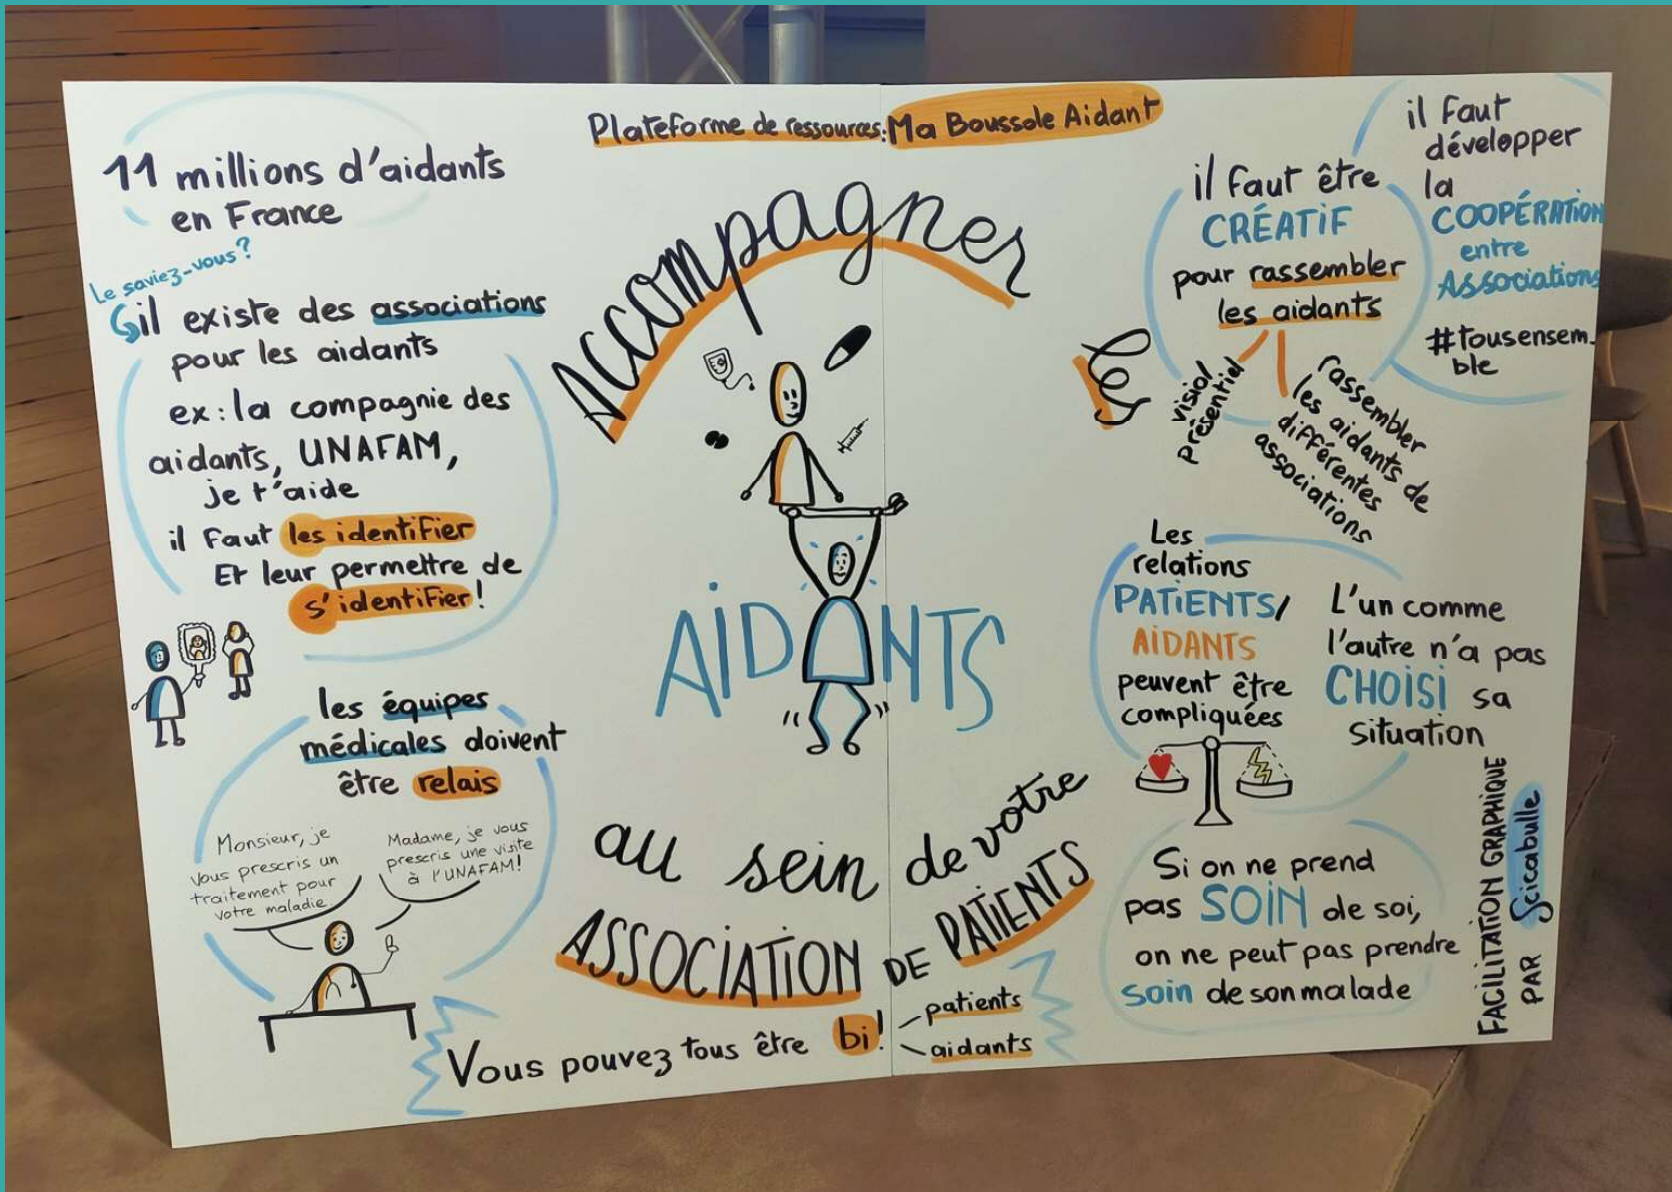 Plateforme de ressources: Ma Boussole Aidant
Accompagner
les
AiDANTS
au sein de votre
ASSOCiATiON DE PATIENTS
11 millions d'aidants
en France
Le saviez-vous?
il existe des associations
pour les aidants
ex: la compagnie des
aidants, UNAFAM,
je t'aide
il faut les identifier
Et leur permettre de
s'identifier!
les équipes
médicales doivent
être relais
Monsieur, je
vous prescris un
traitement pour
votre maladie.
Madame, je vous
prescris une visite
à l'UNAFAM!
Vous pouvez tous être bi!
patients
aidants
il faut être
CRÉATiF
pour rassembler
les aidants
visio/
présentiel
rassembler
les aidants de
différentes
associations
il faut
développer
la
COOPÉRATiON
entre
ASSociations
#tousensem-
ble
Les
relations
PATiENTS/
AiDANTS
peuvent être
compliquées
L'un comme
l'autre n'a pas
CHOiSi sa
situation
Si on ne prend
pas SOiN de soi,
on ne peut pas prendre
soin de son malade
FACiLiTATiON GRAPHiQUE
PAR Scicabulle